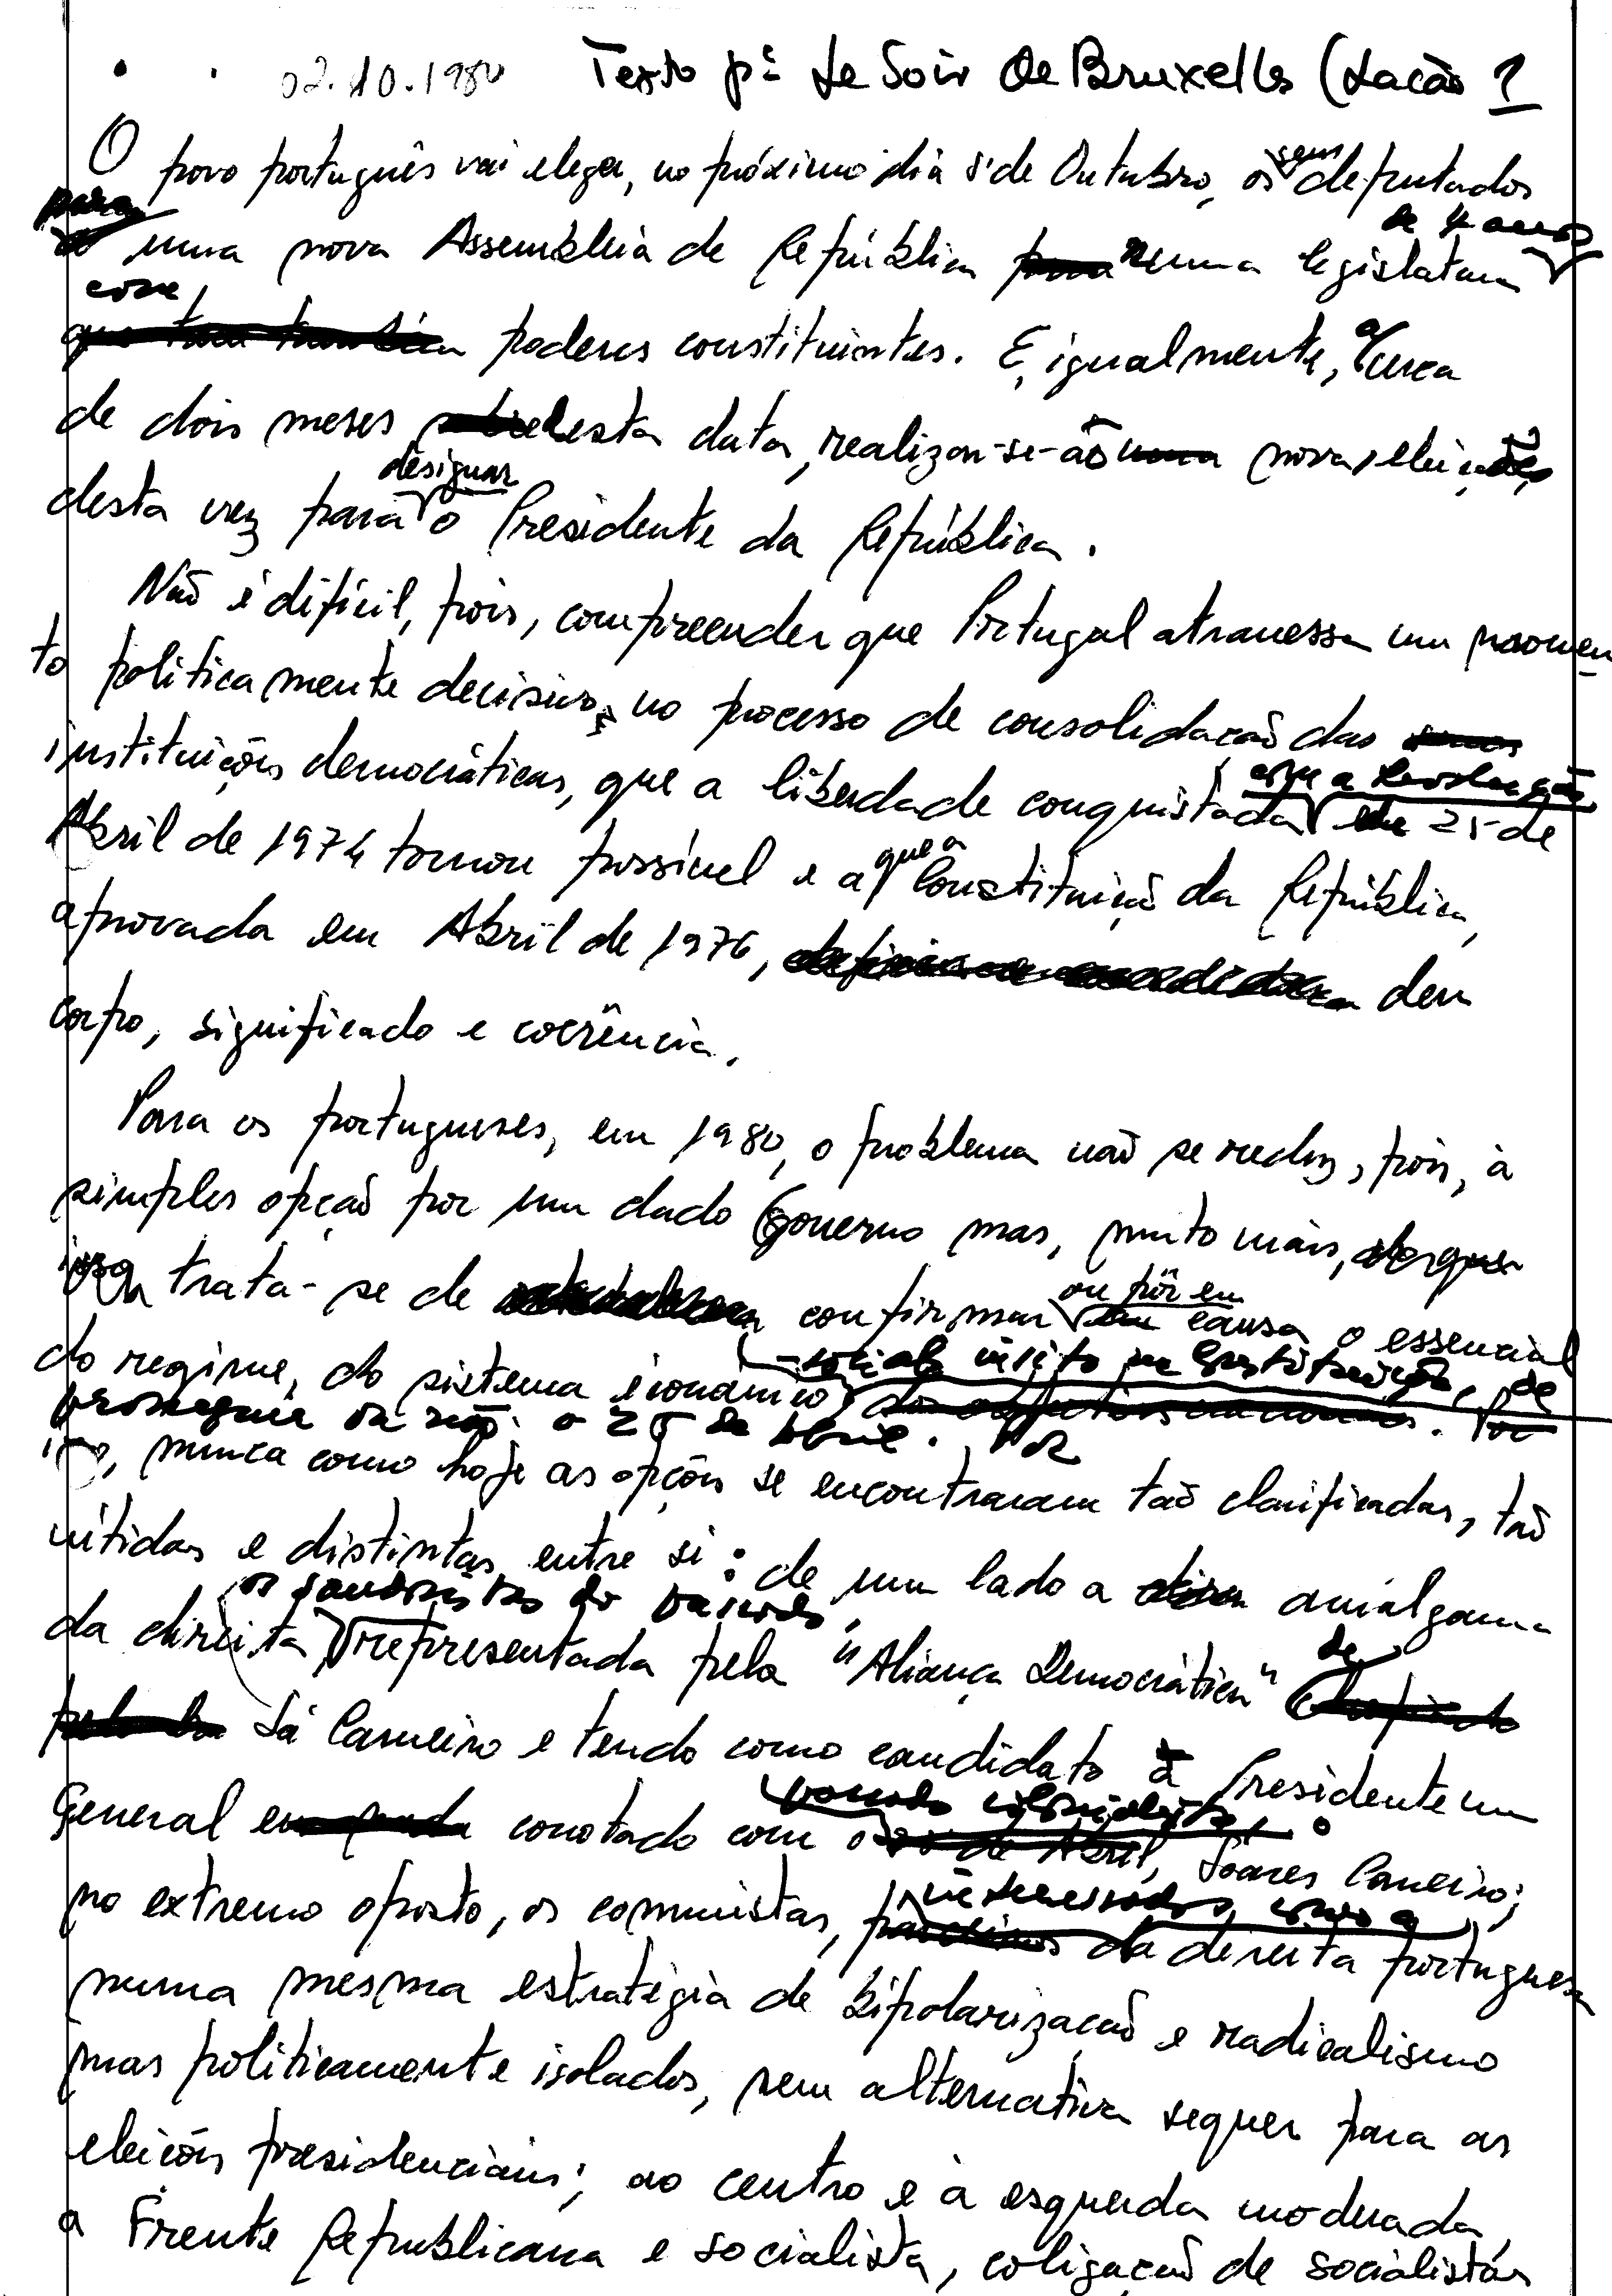 02.10.1980 Texto pª Le Soir de Bruxelles (Lacão 1
O povo português vai eleger, no próximo dia 5 de Outubro, os seus deputados
para uma nova Assembleia da República numa legislatura de 4 anos
com poderes constituintes. E, igualmente, a cerca
de dois meses desta data, realizar-se-ão novas eleições
desta vez para designar o Presidente da República.
Não é difícil, pois, compreender que Portugal atravessa um momen
to politicamente decisivo, no processo de consolidação das
instituições democráticas, que a liberdade conquistada com a Revolução de 25 de
Abril de 1974 tornou possível e a que a Constituição da República,
aprovada em Abril de 1976, deu
corpo, significado e coerência.
Para os portugueses, em 1980, o problema não se reduz, pois, à
simples opção por um dado Governo mas, muito mais,
trata-se de confirmar ou pôr em causa o essencial
do regime, do sistema económico-social ínsito na Constituição, de
prosseguir ou não o 25 de Abril. Por
isso, nunca como hoje as opções se encontraram tão clarificadas, tão
nítidas e distintas entre si: de um lado a amálgama
da direita, os saudosistas do passado, representada pela "Aliança Democrática" de
Sá Carneiro e tendo como candidato a Presidente um
General conotado com o passado colonialista, Soares Carneiro;
no extremo oposto, os comunistas, interessados com a direita portuguesa
numa mesma estratégia de bipolarização e radicalismo
mas politicamente isolados, sem alternativa sequer para as
eleições presidenciais; ao centro e à esquerda moderada,
a Frente Republicana e socialista, coligação de socialistas